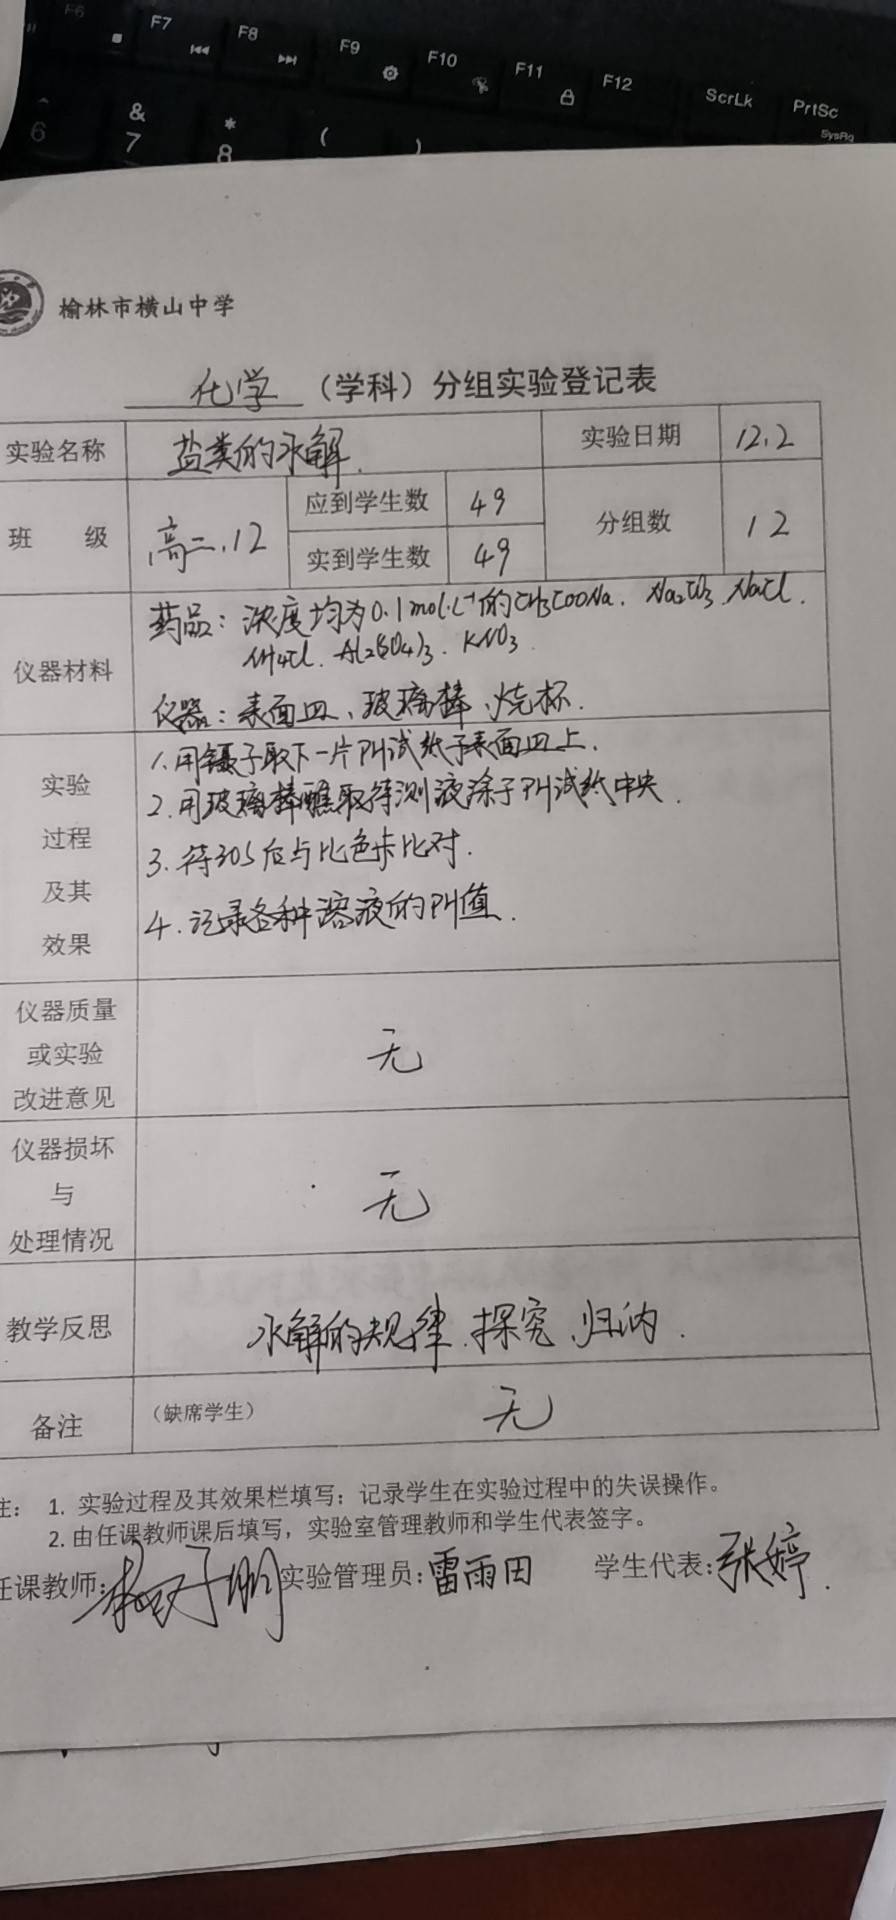 F6 F7 F8 F9 F10 F11 F12 ScrLk PrtSc
SysRq
6 & 7 * 8 ( )
榆林市横山中学
化学 （学科）分组实验登记表
实验名称 盐类的水解. 实验日期 12.2
班 级 高二.12 应到学生数 49 分组数 12
实到学生数 49
仪器材料 药品：浓度均为0.1mol·L⁻¹的CH3COONa、Na2CO3、NaCl、
NH4Cl、Al2(SO4)3、KNO3
仪器：表面皿、玻璃棒、烧杯.
实验
过程
及其
效果
1.用镊子取下一片PH试纸于表面皿上.
2.用玻璃棒蘸取待测液涂于PH试纸中央.
3.待30S后与比色卡比对.
4.记录各种溶液的PH值.
仪器质量
或实验
改进意见
无
仪器损坏
与
处理情况
无
教学反思 水解的规律、探究、归纳.
备注 （缺席学生） 无
注： 1. 实验过程及其效果栏填写：记录学生在实验过程中的失误操作。
2. 由任课教师课后填写，实验室管理教师和学生代表签字。
任课教师： 实验管理员：雷雨田 学生代表：张婷.